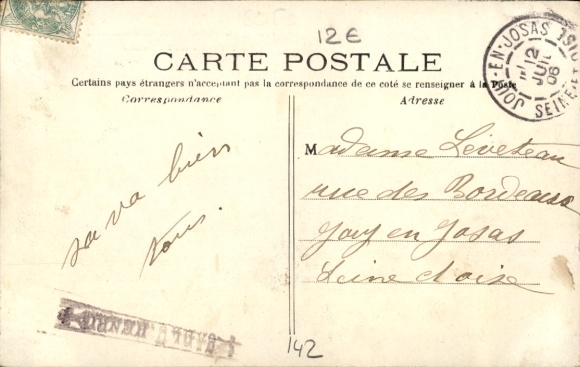 12€
CARTE POSTALE
Certains pays étrangers n'acceptant pas la correspondance de ce coté se renseigner à la Poste
Correspondance
Adresse
JOUY-EN-JOSAS
12
JUIL
06
SEINE
sa va bien
tous.
Madame Leveteau
rue des Bordeaux
Jouy en Josas
Seine et oise
142